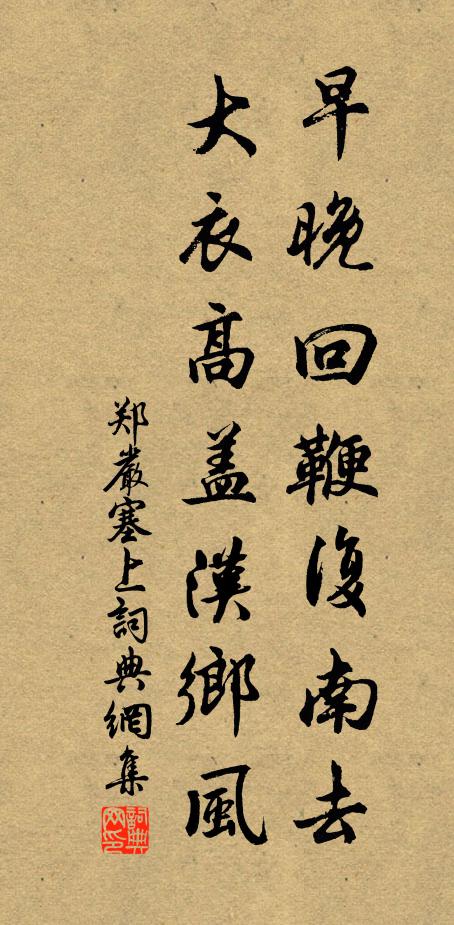 早晚回鞭復南去
大衣高盖漢鄉風
郑嚴塞上詞典網集
詞典网印